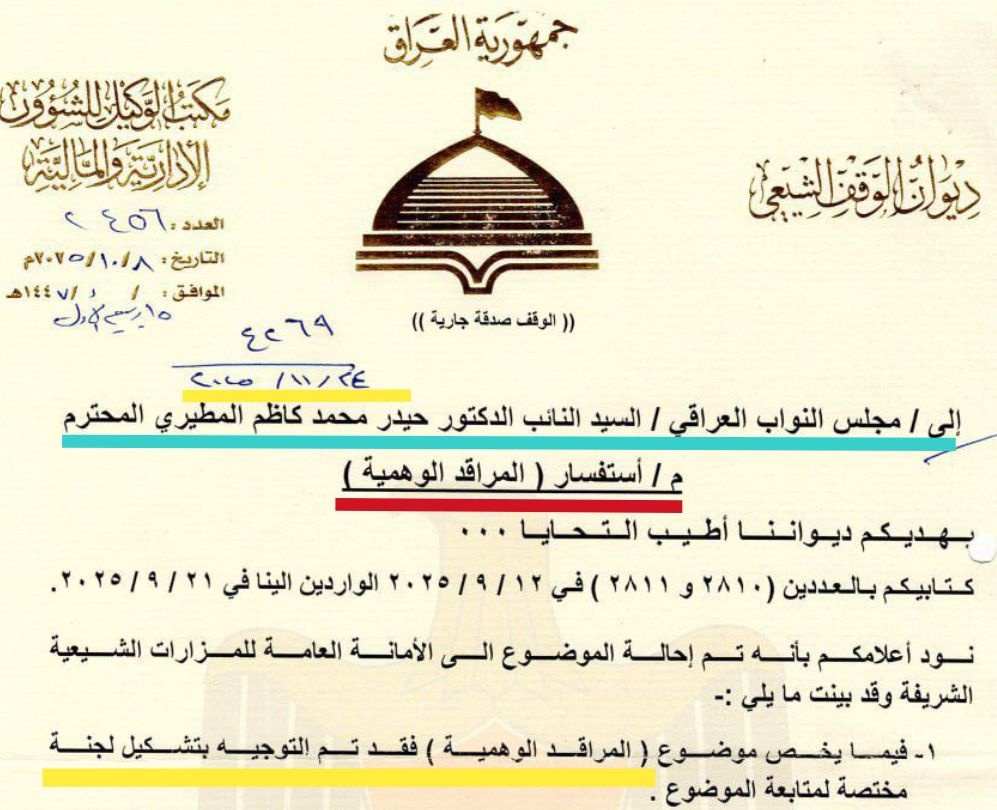 جمهورية العراق
ديوان الوقف الشيعي
مكتب الوكيل للشؤون
الإدارية والمالية
العدد : ٢٤٥٦
التاريخ : ٢٠٢٥/١٠/٨م
الموافق : / / ١٤٤٧هـ
١٥ ربيع الاول
(( الوقف صدقة جارية ))
٤٢٦٩
٢٠٢٥/١١/٢٤
إلى / مجلس النواب العراقي / السيد النائب الدكتور حيدر محمد كاظم المطيري المحترم
م / أستفسار ( المراقد الوهمية )
يهديكم ديواننا أطيب التحايا ...
كتابيكم بالعددين (٢٨١٠ و ٢٨١١ ) في ١٢ / ٩ / ٢٠٢٥ الواردين الينا في ٢١ / ٩ / ٢٠٢٥.
نود أعلامكم بأنه تم إحالة الموضوع الى الأمانة العامة للمزارات الشيعية
الشريفة وقد بينت ما يلي :-
١- فيما يخص موضوع ( المراقد الوهمية ) فقد تم التوجيه بتشكيل لجنة
مختصة لمتابعة الموضوع .